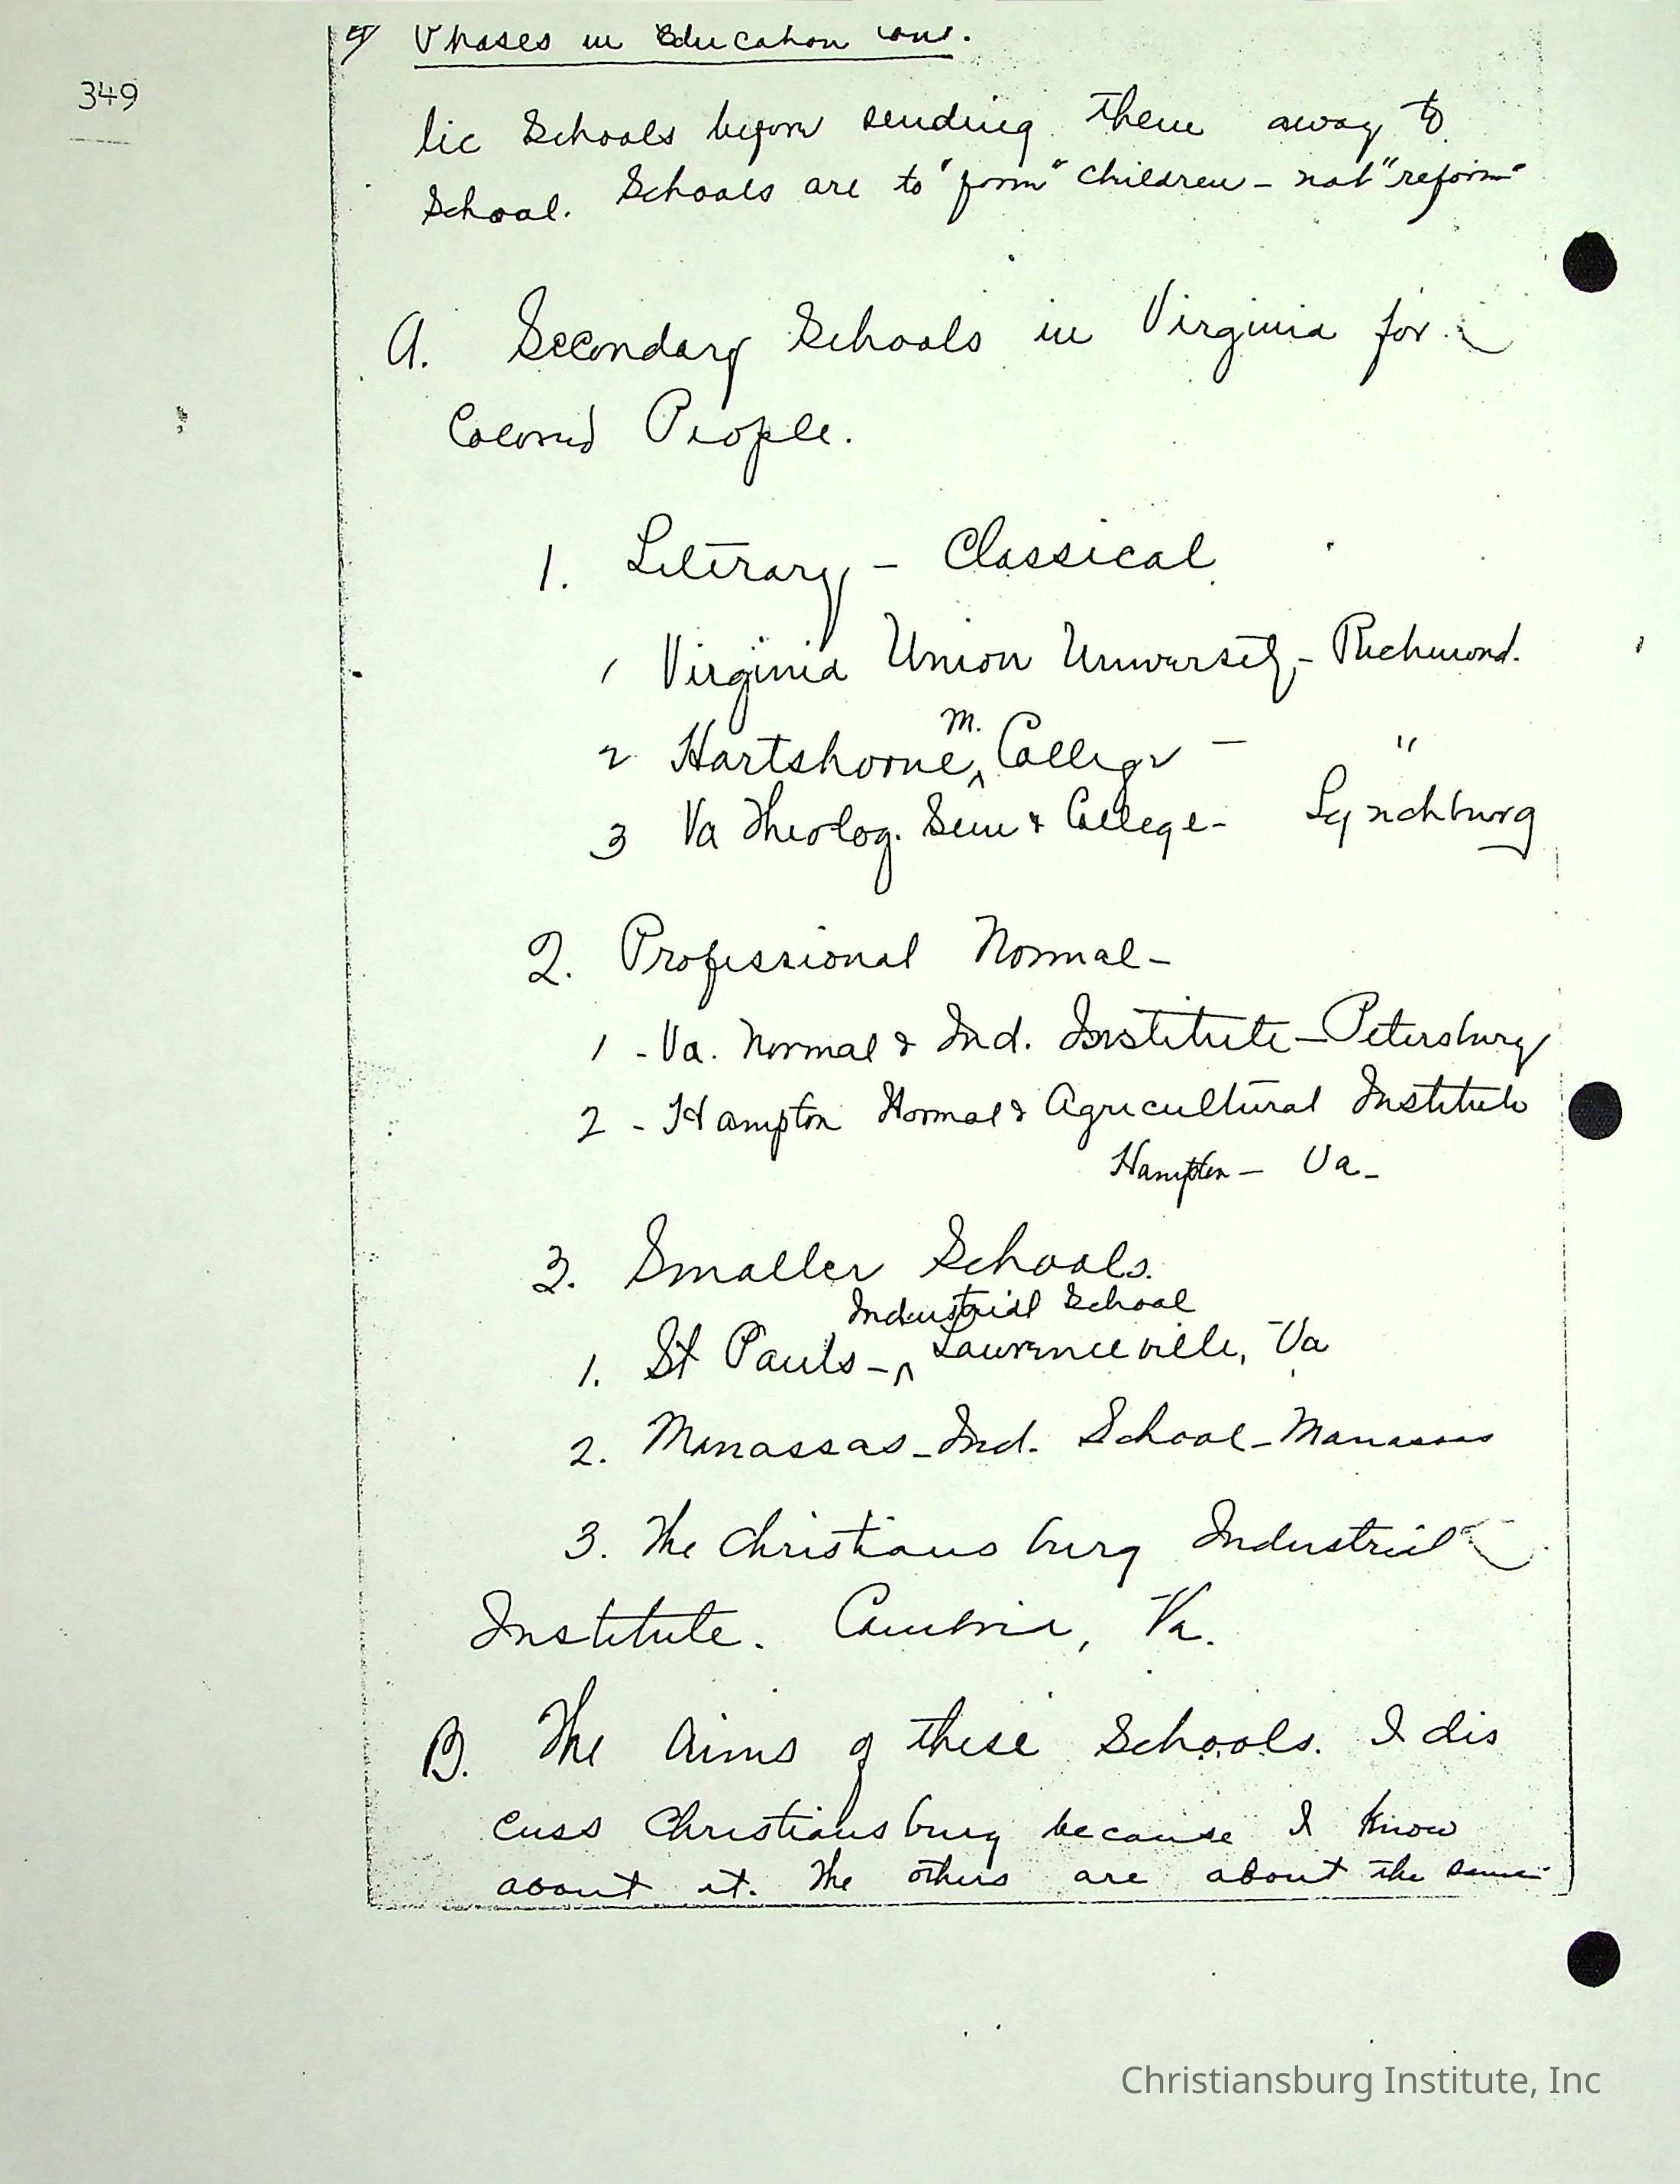 349
Phases in Education cont.
lic Schools before sending them away to
School. Schools are to "form" children - not "reform"
A. Secondary Schools in Virginia for
Colored People.
1. Literary - Classical
1 Virginia Union University - Richmond.
2 Hartshorne M. College - "
3 Va Theolog. Sem & College - Lynchburg
2. Professional Normal -
1 - Va. Normal & Ind. Institute - Petersburg
2 - Hampton Normal & Agricultural Institute
Hampton - Va -
3. Smaller Schools.
Industrial School
1. St Pauls - Lawrenceville, Va
2. Manassas - Ind. School - Manassas
3. The Christiansburg Industrial
Institute. Cambria, Va.
B. The Aims of these Schools. I dis
cuss Christiansburg because I know
about it. The others are about the same
Christiansburg Institute, Inc